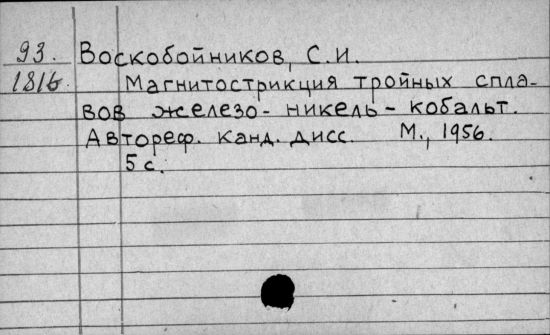 93. Воскобойников, С.И.
1816. Магнитострикция тройных спла-
вов железо- никель - кобальт.
Автореф. канд. дисс. М., 1956.
5 с.